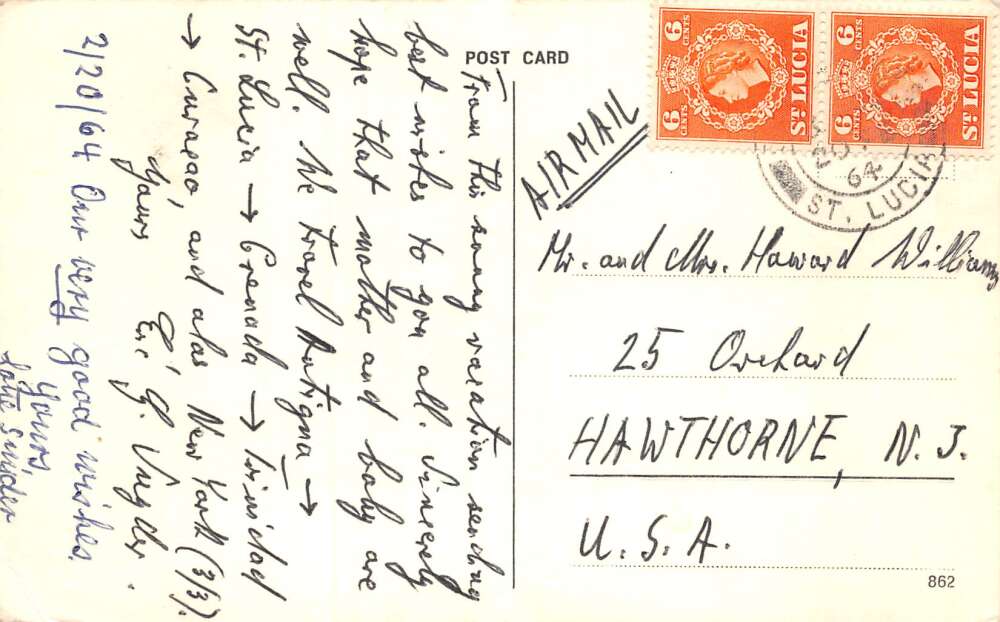 POST CARD
From this sunny vacation sending
best wishes to you all. Sincerely
hope that mother and baby are
well. We travel Antigua →
St. Lucia → Grenada → Trinidad
→ Curaçao, and alas New York (3/3).
Yours
2/20/64 Our very good wishes.
Yours,
AIRMAIL
6 CENTS 6 CENTS ST. LUCIA
6 CENTS 6 CENTS ST. LUCIA
64
ST. LUCIA
Mr. and Mrs. Howard Williams
25 Orchard
HAWTHORNE, N. J.
U. S. A.
862